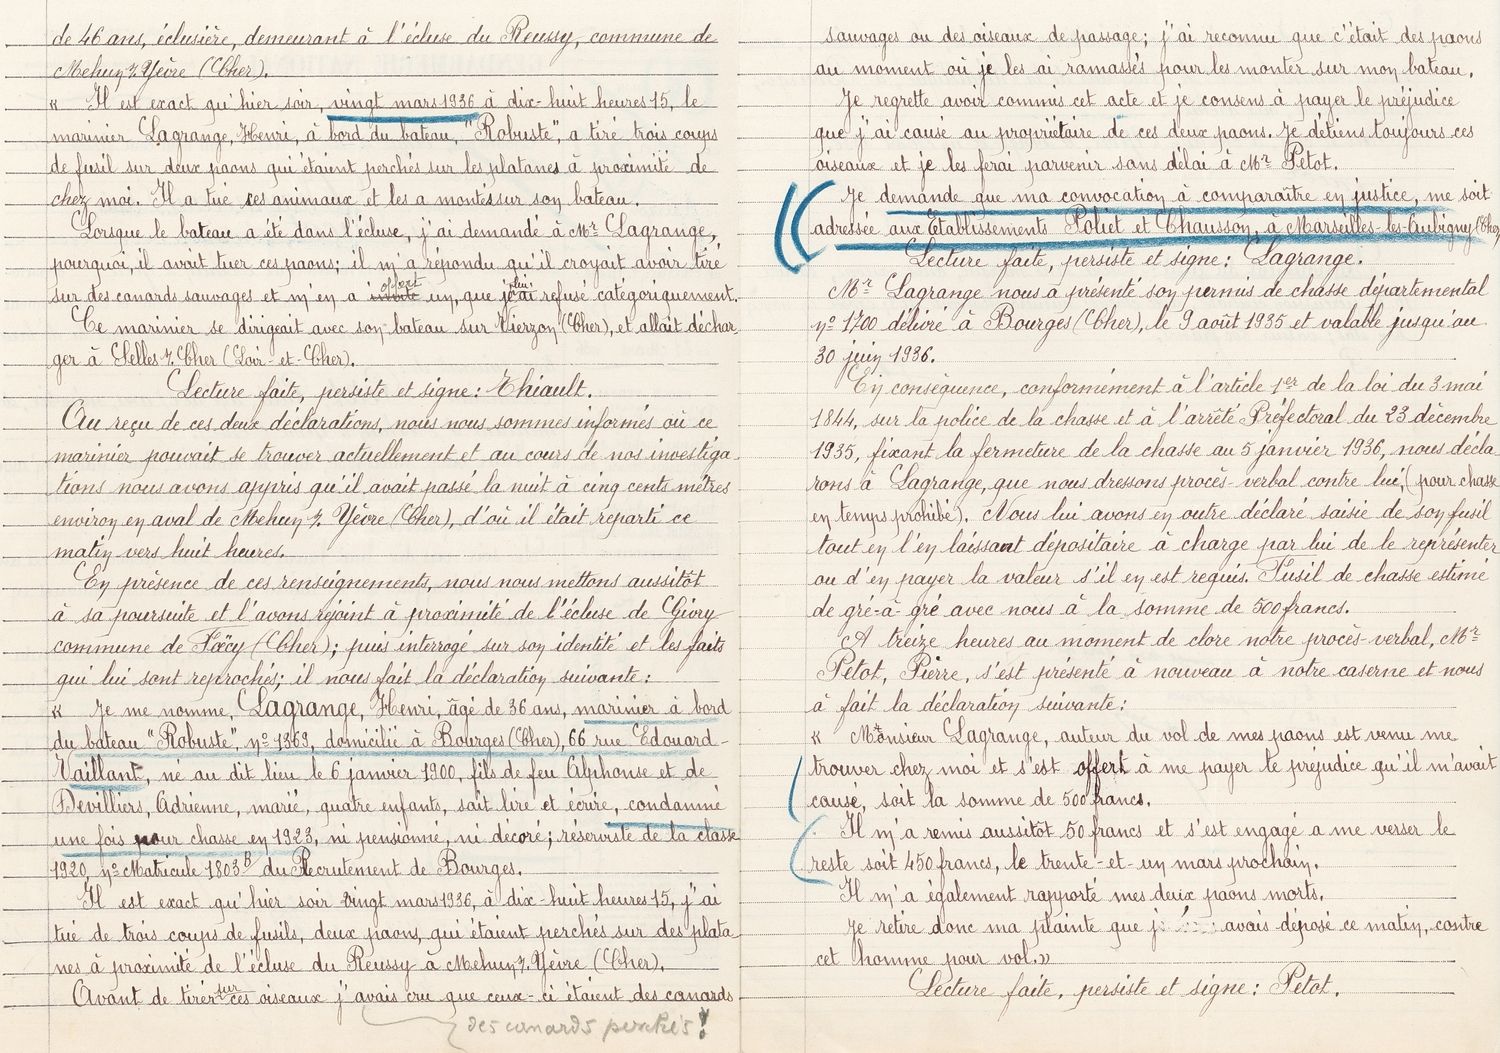 de 46 ans, éclusière, demeurant à l'écluse du Reussy, commune de
Mehun s. Yèvre (Cher).
« Il est exact qu'hier soir, vingt mars 1936 à dix-huit heures 15, le
marinier Lagrange, Henri, à bord du bateau, "Robuste", a tiré trois coups
de fusil sur deux paons qui étaient perchés sur les platanes à proximité de
chez moi. Il a tué ces animaux et les a montés sur son bateau.
Lorsque le bateau a été dans l'écluse, j'ai demandé à Mr Lagrange,
pourquoi, il avait tuer ces paons; il m'a répondu qu'il croyait avoir tiré
sur des canards sauvages et m'en a offert un, que je lui ai refusé catégoriquement.
Ce marinier se dirigeait avec son bateau sur Vierzon (Cher), et allait déchar
ger à Selles s. Cher (Loir-et-Cher).
Lecture faite, persiste et signe: Thiault.
Au reçu de ces deux déclarations, nous nous sommes informés où ce
marinier pouvait se trouver actuellement et au cours de nos investiga
tions nous avons appris qu'il avait passé la nuit à cinq cents mètres
environ en aval de Mehun s. Yèvre (Cher), d'où il était reparti ce
matin vers huit heures.
En présence de ces renseignements, nous nous mettons aussitôt
à sa poursuite et l'avons rejoint à proximité de l'écluse de Givry
commune de Foëcy (Cher); puis interrogé sur son identité et les faits
qui lui sont reprochés; il nous fait la déclaration suivante:
« Je me nomme, Lagrange, Henri, âgé de 36 ans, marinier à bord
du bateau "Robuste", no 1369, domicilié à Bourges (Cher), 66 rue Edouard-
Vaillant, né au dit lieu le 6 janvier 1900, fils de feu Alphonse et de
Devilliers, Adrienne, marié, quatre enfants, sait lire et écrire, condamné
une fois pour chasse en 1923, ni pensionné, ni décoré; réserviste de la classe
1920, no Matricule 1803 B du Recrutement de Bourges.
Il est exact qu'hier soir vingt mars 1936, à dix-huit heures 15, j'ai
tué de trois coups de fusils, deux paons, qui étaient perchés sur des plata-
nes à proximité de l'écluse du Reussy à Mehun s. Yèvre (Cher).
Avant de tirer sur ces oiseaux j'avais cru que ceux-ci étaient des canards
des canards perchés !
sauvages ou des oiseaux de passage; j'ai reconnu que c'était des paons
au moment où je les ai ramassés pour les monter sur mon bateau.
Je regrette avoir commis cet acte et je consens à payer le préjudice
que j'ai causé au propriétaire de ces deux paons. Je détiens toujours ces
oiseaux et je les ferai parvenir sans délai à Mr Petot.
Je demande que ma convocation à comparaître en justice, me soit
adressée aux Etablissements Poliet et Chausson, à Marseilles-les-Aubigny (Cher)
Lecture faite, persiste et signe: Lagrange.
Mr Lagrange nous a présenté son permis de chasse départemental
no 1700 délivré à Bourges (Cher), le 9 août 1935 et valable jusqu'au
30 juin 1936.
En conséquence, conformément à l'article 1er de la loi du 3 mai
1844, sur la police de la chasse et à l'arrêté Préfectoral du 23 décembre
1935, fixant la fermeture de la chasse au 5 janvier 1936, nous décla
rons à Lagrange, que nous dressons procès-verbal contre lui, (pour chasse
en temps prohibé). Nous lui avons en outre déclaré saisie de son fusil
tout en l'en laissant dépositaire à charge par lui de le représenter
ou d'en payer la valeur s'il en est requis. Fusil de chasse estimé
de gré-à-gré avec nous à la somme de 500 francs.
A treize heures au moment de clore notre procès-verbal, Mr
Petot, Pierre, s'est présenté à nouveau à notre caserne et nous
à fait la déclaration suivante:
« Monsieur Lagrange, auteur du vol de mes paons est venu me
trouver chez moi et s'est offert à me payer le préjudice qu'il m'avait
causé, soit la somme de 500 francs.
Il m'a remis aussitôt 50 francs et s'est engagé a me verser le
reste soit 450 francs, le trente-et-un mars prochain.
Il m'a également rapporté mes deux paons morts.
Je retire donc ma plainte que j' avais déposé ce matin, contre
cet homme pour vol.»
Lecture faite, persiste et signe: Petot.